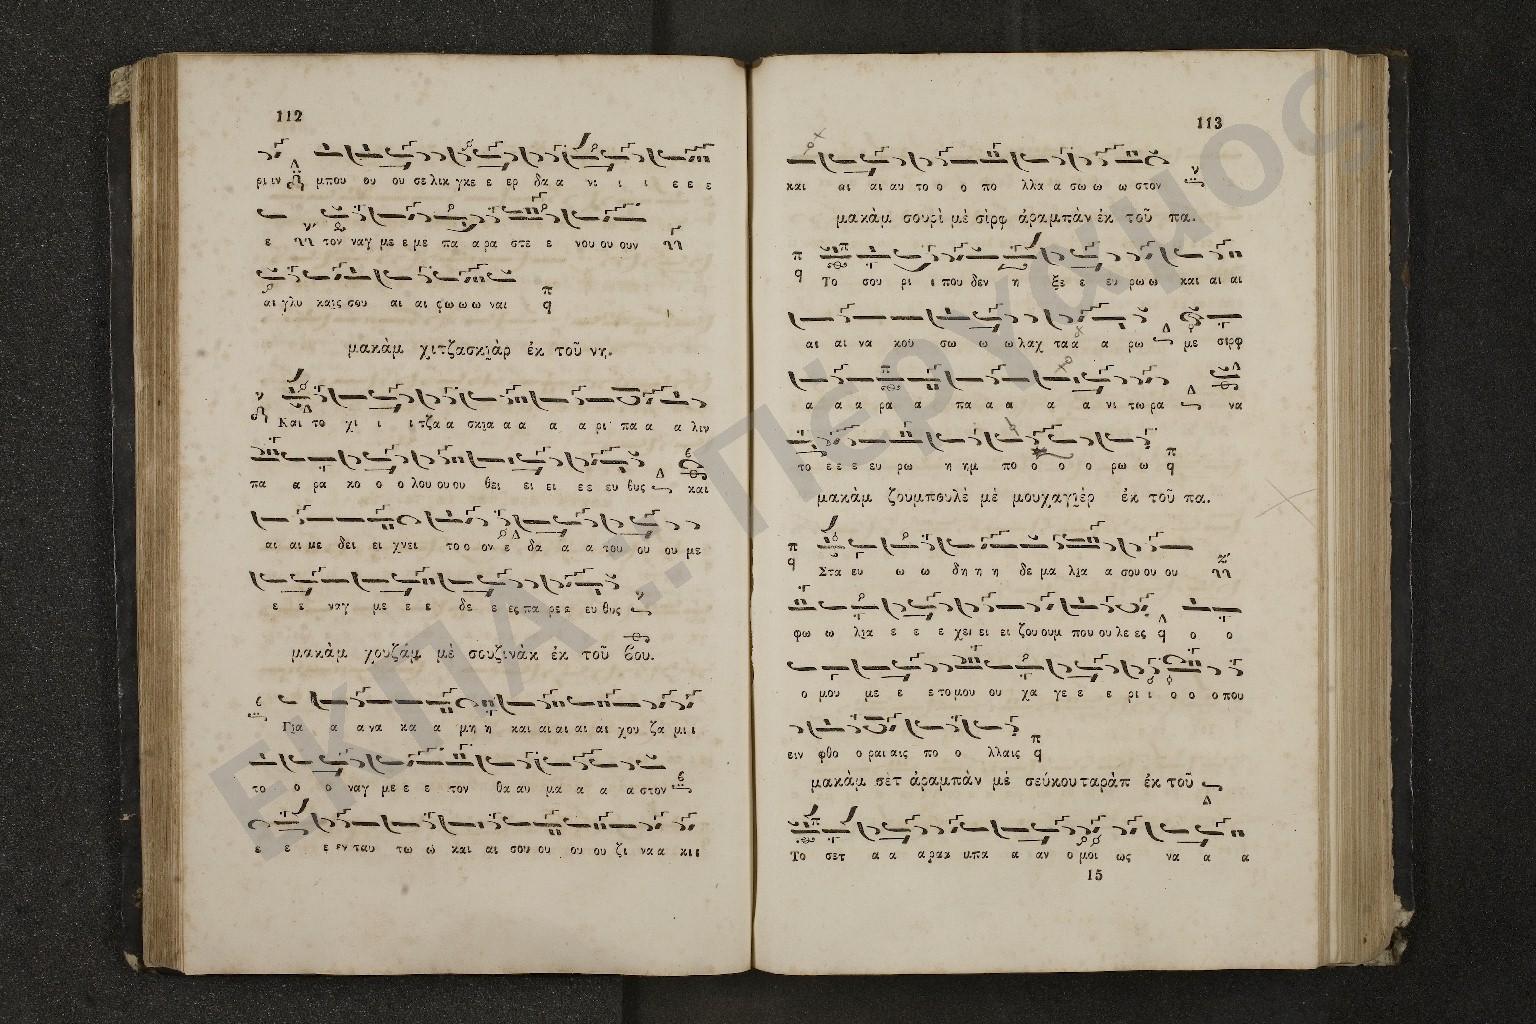 112
ρι ιν μπου ου ου σε λικ γκε ε ερ δα α νι ι ι ι ε ε ε
ε τον ναγ με ε με πα α ρα στε ε νου ου ουν
αι γλυ καις σου αι αι ζω ω ω ναι
μακὰμ χιτζασκιὰρ ἐκ τοῦ νη.
Και το χι ι ι τζα α σκια α α α α ρι πα α α λιν
πα α ρα κο ο ο λου ου ου θει ει ει ε ε ευ θυς και
αι αι με δει ει χνει το ο ον ε δα α α του ου ου με
ε ε ναγ με ε ε δε ε ες πα ρε ε ευ θυς
μακὰμ χουζάμ μὲ σουζινὰκ ἐκ τοῦ βου.
Για α α να κα α μη η και αι αι αι αι χου ζα μι ι
το ο ο ναγ με ε ε τον θα αυ μα α α α στον
ε ε ε εν ταυ τω ω και αι σου ου ου ου ζι να α κι ι
113
και αι αι αυ το ο ο πο λλα α σω ω ω στον
μακὰμ σουρὶ μὲ σὶρφ ἀραμπὰν ἐκ τοῦ πα.
Το σου ρι ι που δεν η ξε ε ευ ρω ω και αι αι
αι αι να κου σω ω ω λαχ τα α α ρω με σιρφ
α α α ρα α πα α α α α νι τω ρα να
το ε ε ε ευ ρω η ημ πο ο ο ο ρω ω
μακὰμ ζουμπουλὲ μὲ μουχαγιὲρ ἐκ τοῦ πα.
Στα ευ ω ω δη η η δε μα λια α σου ου ου
φω ω λια ε ε ε χει ει ει ζου ουμ που ου λε ες ο ο
ο μου με ε ε το μου ου χα γε ε ε ρι ι ο ο ο που
ειν φθο ο ραι αις πο ο λλαις
μακὰμ σὲτ ἀραμπὰν μὲ σεύκουταρὰπ ἐκ τοῦ
Το σετ α α α ρακ μπα α αν ο μοι ως να α α
15
ΕΚΠΑ :: Πέργαμος